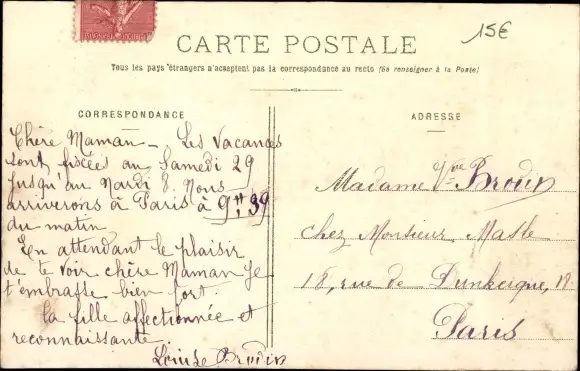 15€
CARTE POSTALE
Tous les pays étrangers n'acceptent pas la correspondance au recto (Se renseigner à la Poste)
CORRESPONDANCE
Chère Maman - Les Vacances
sont fixées au Samedi 29
jusqu'au Mardi 8. Nous
arriverons à Paris à 9H 39
du matin
En attendant le plaisir
de te voir chère Maman Je
t'embrasse bien fort.
ta fille affectionnée et
reconnaissante
Louise Brodin
ADRESSE
Madame Vve Brodin
chez Monsieur Masle
18, rue de Dunkerque, 18
Paris